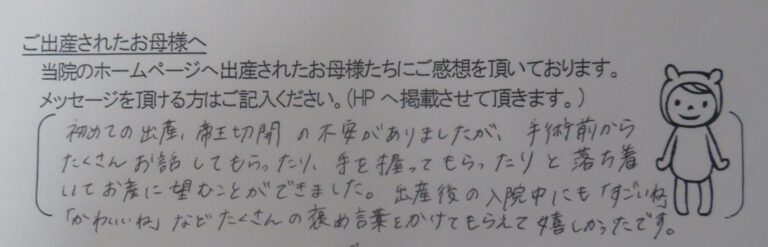 ご出産されたお母様へ
当院のホームページへ出産されたお母様たちにご感想を頂いております。
メッセージを頂ける方はご記入ください。(HPへ掲載させて頂きます。)
初めての出産、帝王切開の不安がありましたが、手術前から
たくさんお話してもらったり、手を握ってもらったりと落ち着
いてお産に望むことができました。出産後の入院中にも「すごいね」
「かわいいね」などたくさんの褒め言葉をかけてもらえて嬉しかったです。